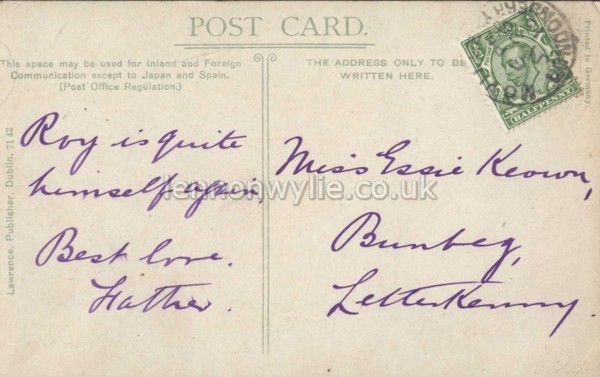 POST CARD.
This space may be used for Inland and Foreign
Communication except to Japan and Spain.
(Post Office Regulation.)
THE ADDRESS ONLY TO BE
WRITTEN HERE.
Printed in Germany
HALFPENNY
Lawrence, Publisher, Dublin, 7142
Roy is quite
himself again,
Best love.
Father.
Miss Essie Keown,
Bunbeg,
Letterkenny.
lennonwylie.co.uk